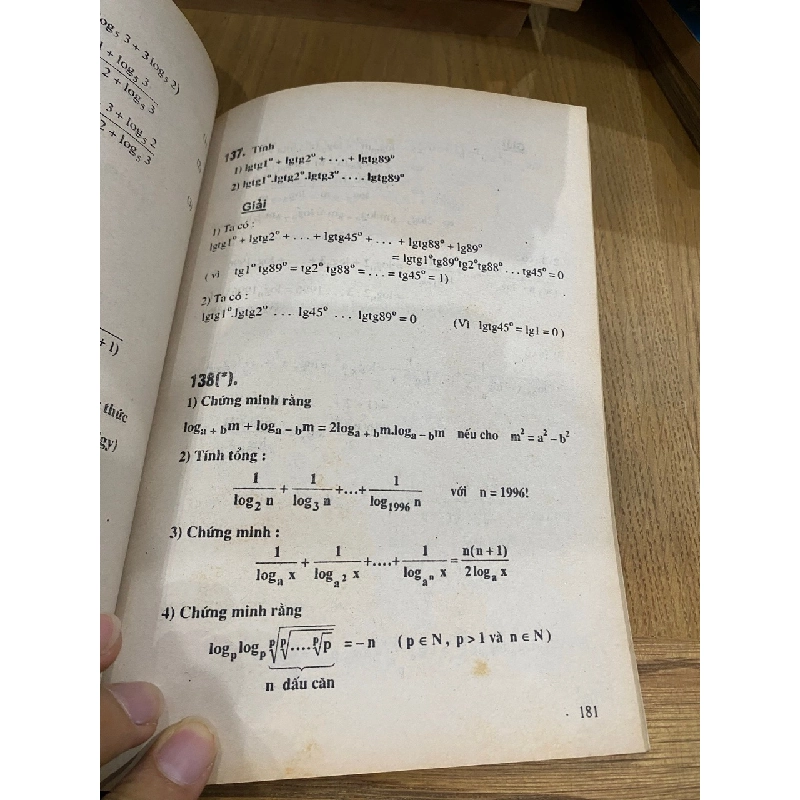 og₅ 3 + 3 log₅ 2)
1 + log₅ 3
2 + log₅ 3
3 + log₅ 2
2 + log₅ 3
+ 1)
thức
gy)
137. Tính
1) lgtg1° + lgtg2° + . . . + lgtg89°
2) lgtg1°.lgtg2°.lgtg3° . . . . lgtg89°
Giải
1) Ta có :
lgtg1° + lgtg2° + . . . + lgtg45° + . . . + lgtg88° + lg89°
= lgtg1°tg89°tg2°tg88° . . . tg45° = 0
( vì tg1° tg89° = tg2° tg88° = . . . = tg45° = 1)
2) Ta có :
lgtg1°.lgtg2° . . . lg45° . . . lgtg89° = 0 (Vì lgtg45° = lg1 = 0 )
138(*).
1) Chứng minh rằng
logₐ ₊ bm + logₐ ₋ bm = 2logₐ ₊ bm.logₐ ₋ bm nếu cho m² = a² – b²
2) Tính tổng :
1/log₂ n + 1/log₃ n +...+ 1/log₁₉₉₆ n với n = 1996!
3) Chứng minh :
1/logₐ x + 1/log_{a²} x +....+ 1/log_{aⁿ} x = n(n + 1)/2logₐ x
4) Chứng minh rằng
logₚ logₚ ᵖ√ᵖ√....ᵖ√p = – n ( p ∈ N , p > 1 và n ∈ N )
n dấu căn
181